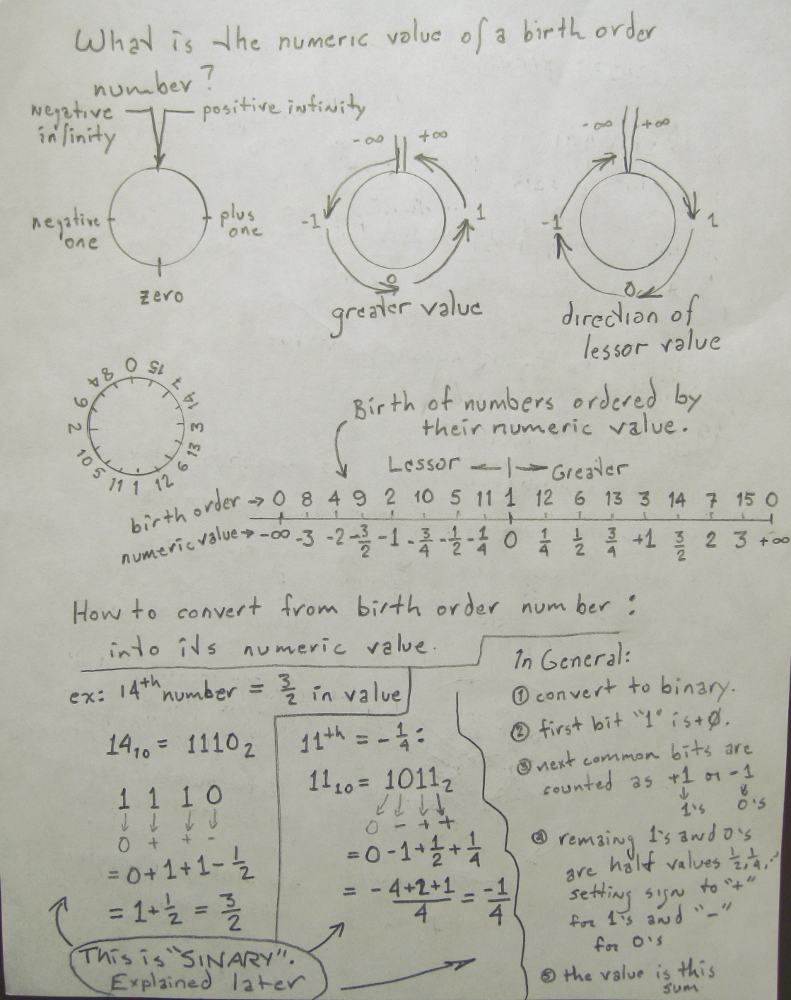 What is the numeric value of a birth order
number?
negative
infinity
positive infinity
negative
one
plus
one
zero
-∞ +∞
-1
1
0
greater value
-∞ +∞
-1
1
0
direction of
lessor value
0 15 7 14 3 13 6 12 1 11 5 10 2 9 4 8
Birth of numbers ordered by
their numeric value.
Lessor ←|→ Greater
birth order → 0 8 4 9 2 10 5 11 1 12 6 13 3 14 7 15 0
numeric value → -∞ -3 -2 -3/2 -1 -3/4 -1/2 -1/4 0 1/4 1/2 3/4 +1 3/2 2 3 +∞
How to convert from birth order number :
into its numeric value.
ex: 14th number = 3/2 in value
14₁₀ = 1110₂
1 1 1 0
↓ ↓ ↓ ↓
0 + + -
= 0+1+1-1/2
= 1+1/2 = 3/2
11th = -1/4:
11₁₀ = 1011₂
0 - + +
= 0-1+1/2+1/4
= -4+2+1/4 = -1/4
This is "SINARY".
Explained later
In General:
① convert to binary.
② first bit "1" is +0.
③ next common bits are
counted as +1 or -1
↓ ↓
1's 0's
④ remaing 1's and 0's
are half values 1/2, 1/4, ..
setting sign to "+"
for 1's and "-"
for 0's
⑤ the value is this
sum